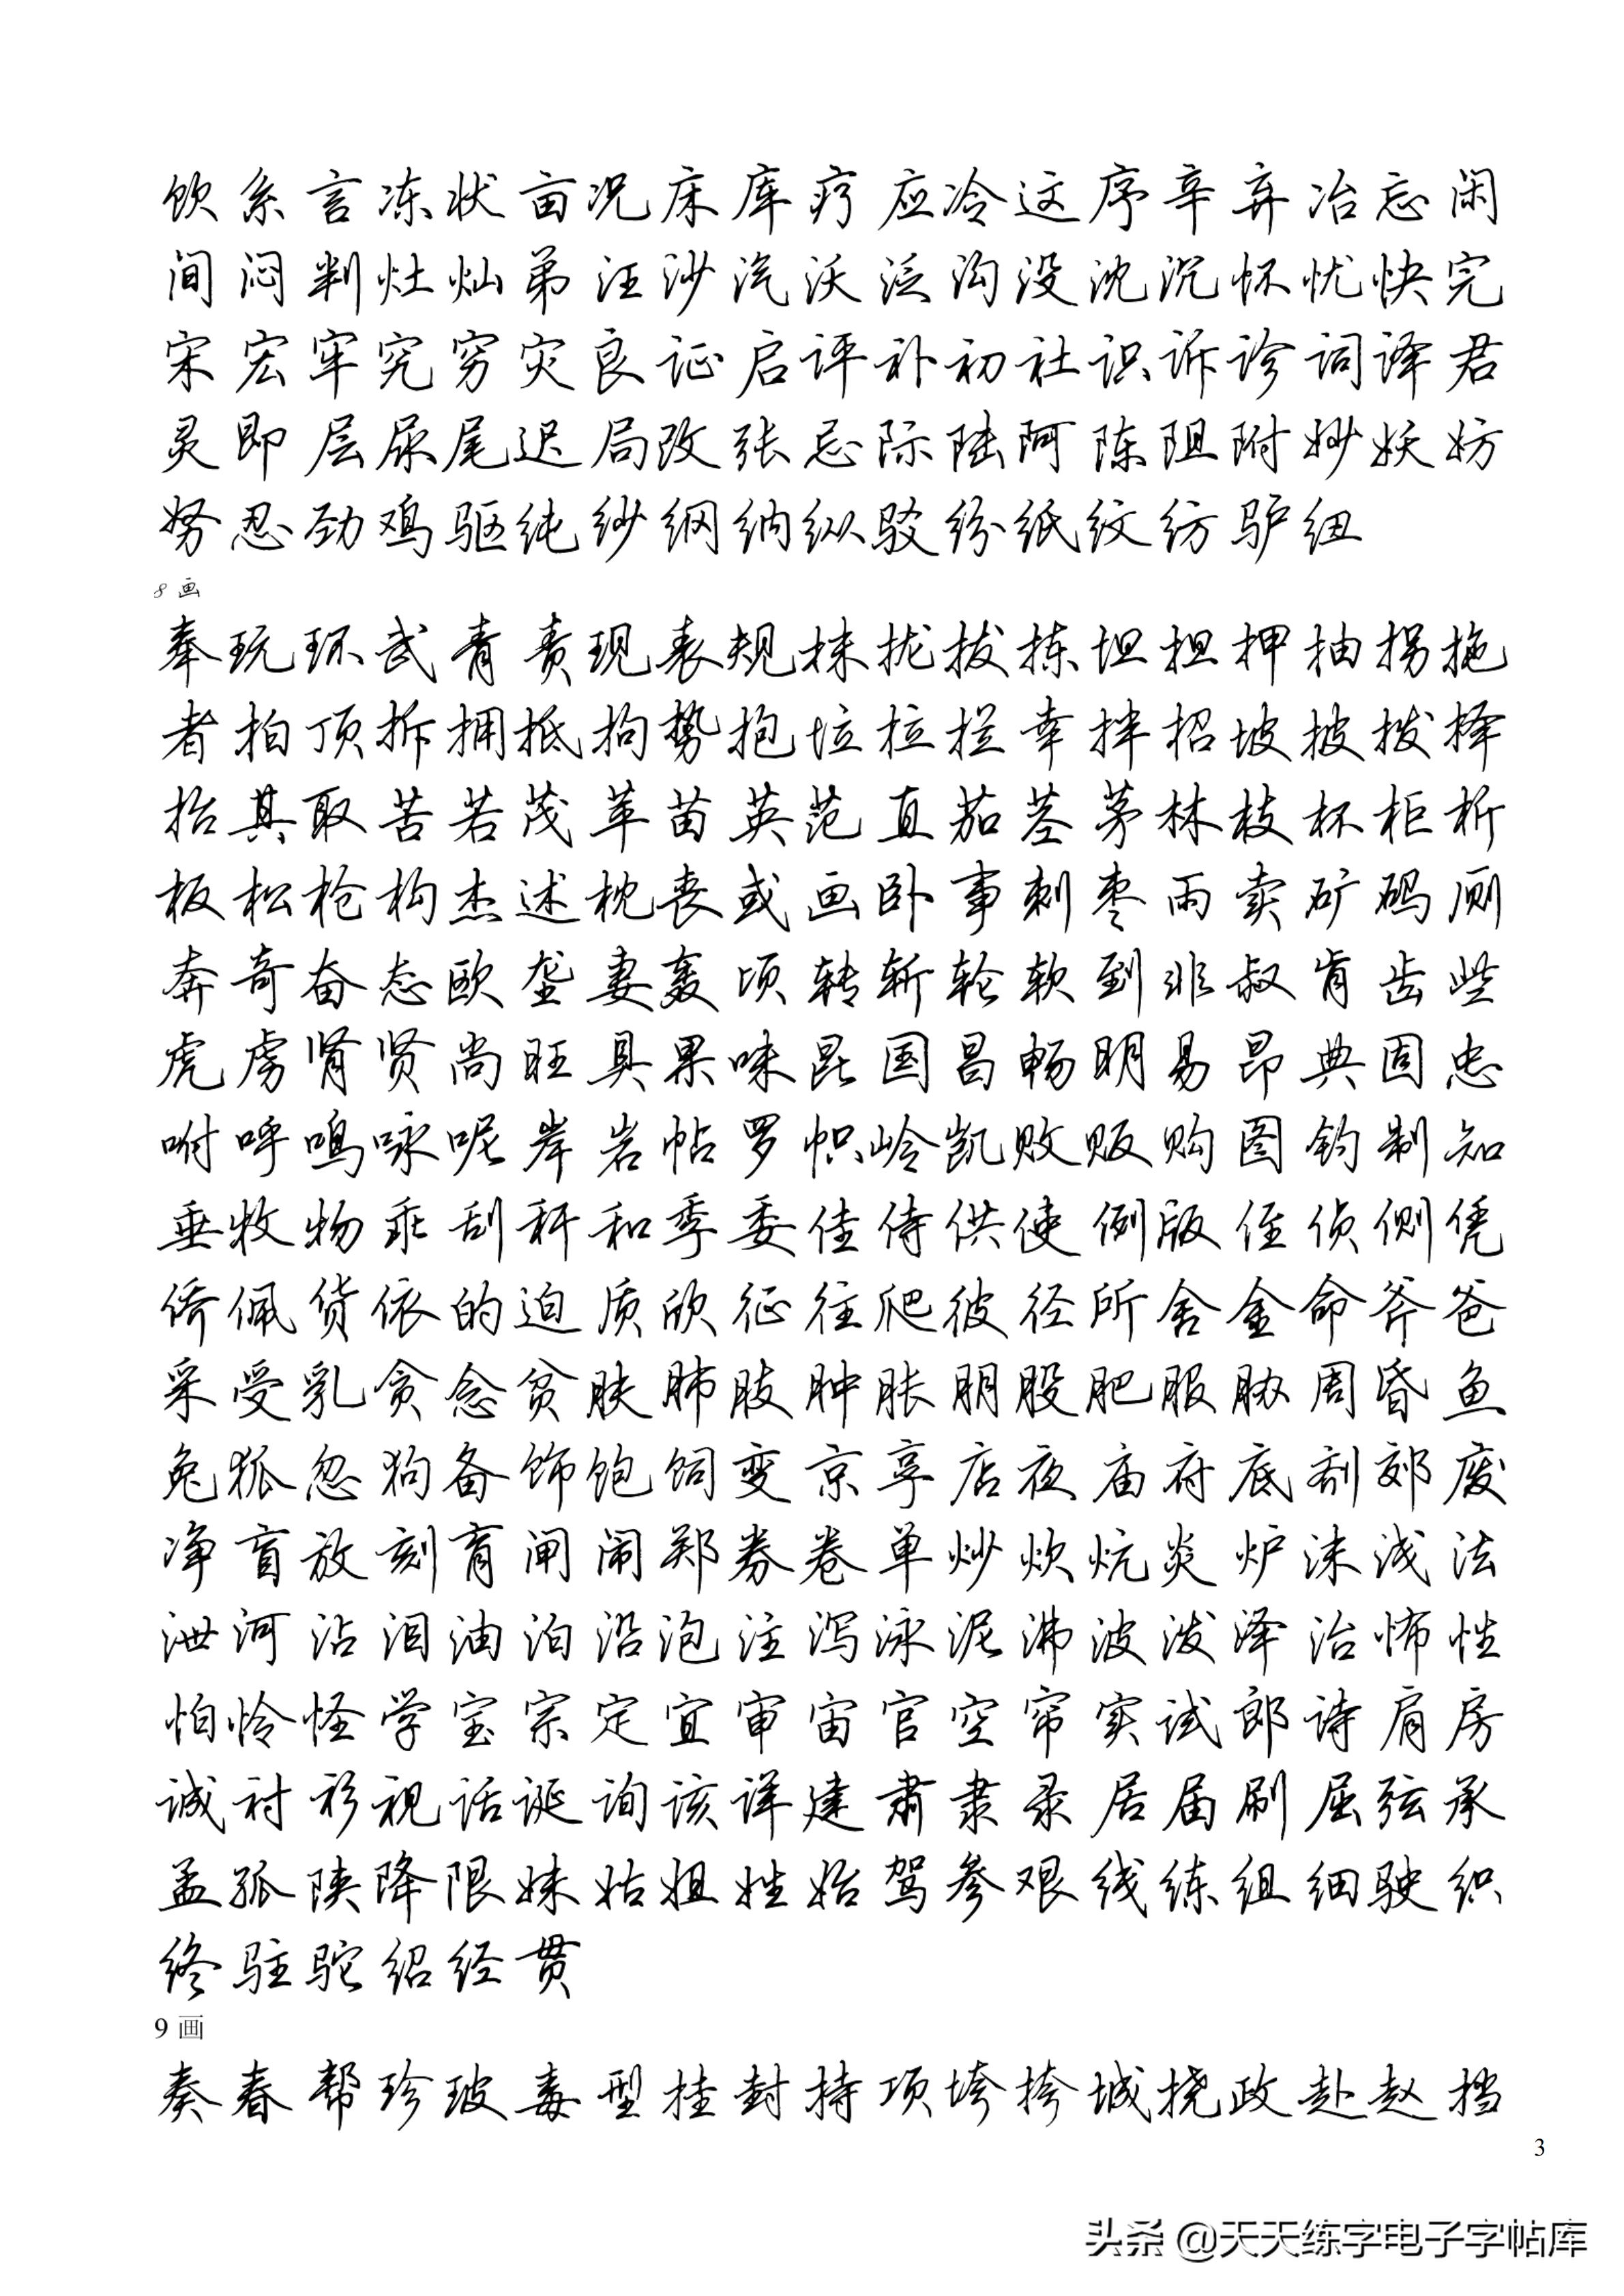 饮系言冻状亩况床库疗应冷这序辛弃冶忘闲
间闷判灶灿弟汪沙汽沃泛沟没沈沉怀忧快完
宋宏牢究穷灾良证启评补初社识诉诊词译君
灵即层尿尾迟局改张忌际陆阿陈阻附妙妖妨
努忍劲鸡驱纯纱纲纳纵驳纷纸纹纺驴纽
8画
奉玩环武青责现表规抹拢拔拣坦担押抽拐拖
者拍顶拆拥抵拘势抱垃拉拦幸拌招坡披拨择
抬其取苦若茂苹苗英范直茄茎茅林枝杯柜析
板松枪构杰述枕丧或画卧事刺枣雨卖矿码厕
奔奇奋态欧垄妻轰顷转斩轮软到非叔肯齿些
虎虏肾贤尚旺具果味昆国昌畅明易昂典固忠
咐呼鸣咏呢岸岩帖罗帜岭凯败贩购图钓制知
垂牧物乖刮秆和季委佳侍供使例版侄侦侧凭
侨佩货依的迫质欣征往爬彼径所舍金命斧爸
采受乳贪念贫肤肺肢肿胀朋股肥服胁周昏鱼
兔狐忽狗备饰饱饲变京享店夜庙府底剂郊废
净盲放刻育闸闹郑券卷单炒炊炕炎炉沫浅法
泄河沾泪油泊沿泡注泻泳泥沸波泼泽治怖性
怕怜怪学宝宗定宜审宙官空帘实试郎诗肩房
诚衬衫视话诞询该详建肃隶录居届刷屈弦承
孟孤陕降限妹姑姐姓始驾参艰线练组细驶织
终驻驼绍经贯
9画
奏春帮珍玻毒型挂封持项垮挎城挠政赴赵挡
3
头条 @天天练字电子字帖库